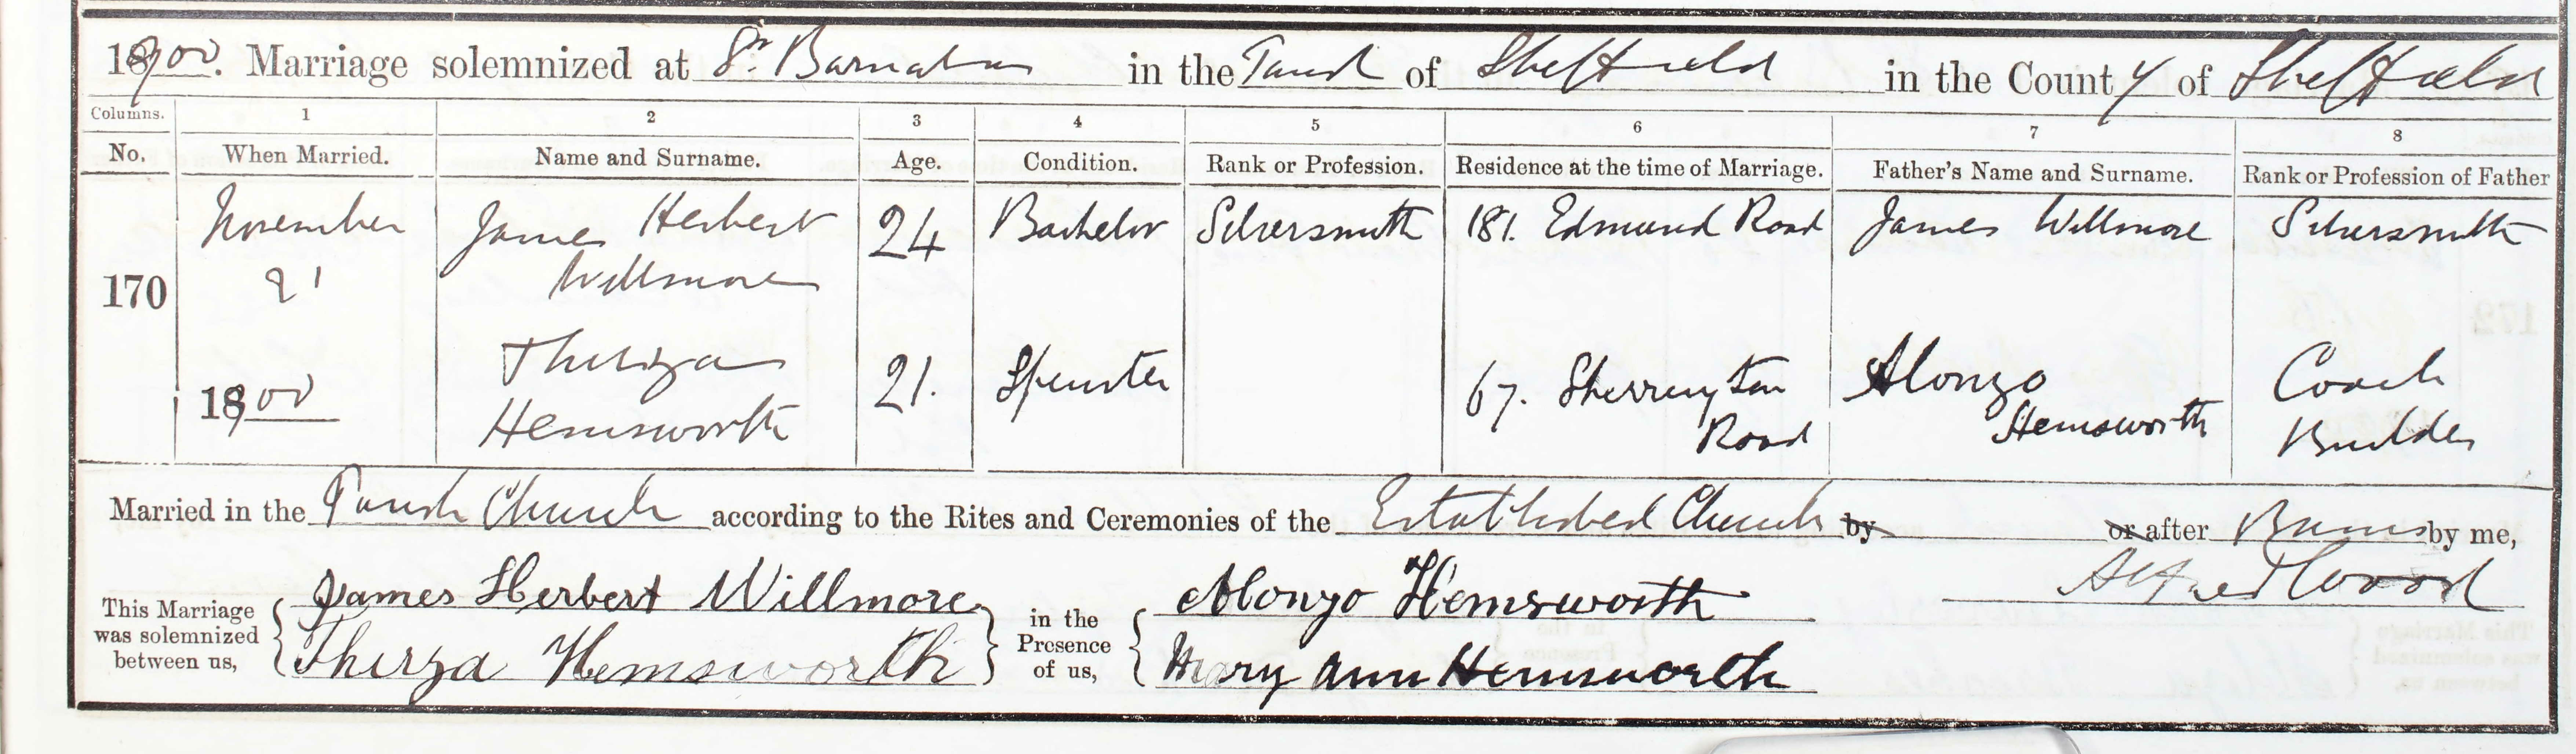 1900. Marriage solemnized at St. Barnabas in the Parish of Sheffield in the County of Sheffield
Columns. 1 2 3 4 5 6 7 8
No. When Married. Name and Surname. Age. Condition. Rank or Profession. Residence at the time of Marriage. Father's Name and Surname. Rank or Profession of Father
November James Herbert 24 Bachelor Silversmith 181. Edmund Road James Willmore Silversmith
170 21 Willmore
Thirza 21. Spinster 67. Sherrington Alonzo Coach
1900 Hemsworth Road Hemsworth Builder
Married in the Parish Church according to the Rites and Ceremonies of the Established Church by or after Banns by me,
James Herbert Willmore Alonzo Hemsworth Alfred Wood
This Marriage was solemnized between us, in the Presence of us,
Thirza Hemsworth Mary Ann Hemsworth